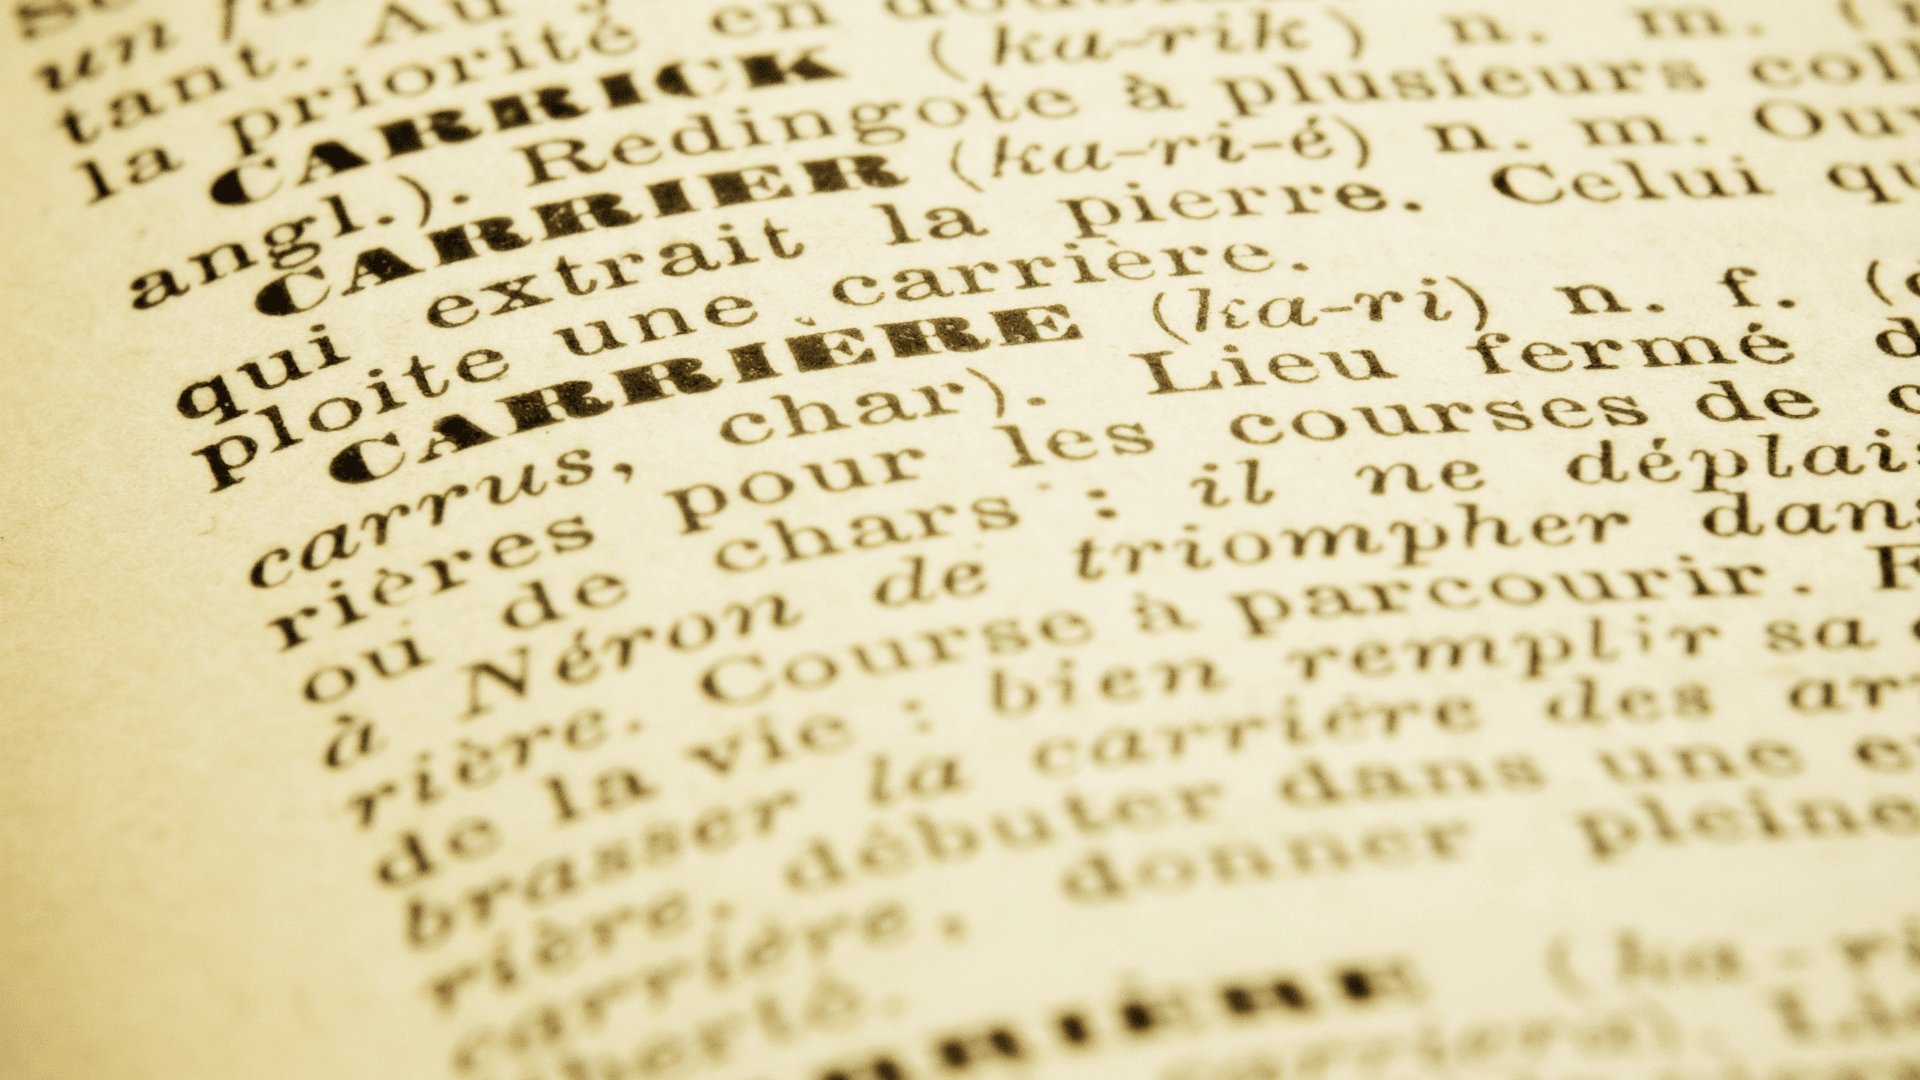 un
tant. Au
la priorité en
CARRICK (ka-rik) n. m. (
angl.). Redingote à plusieurs coll
CARRIER (ka-ri-é) n. m. Ouv
qui extrait la pierre. Celui qu
ploite une carrière.
CARRIÈRE (ka-ri) n. f. (d
carrus, char). Lieu fermé d
rières pour les courses de c
ou de chars : il ne déplais
à Néron de triompher dans
rière. Course à parcourir. F
de la vie : bien remplir sa
brasser la carrière des ar
rière, débuter dans une
carrière, donner pleine